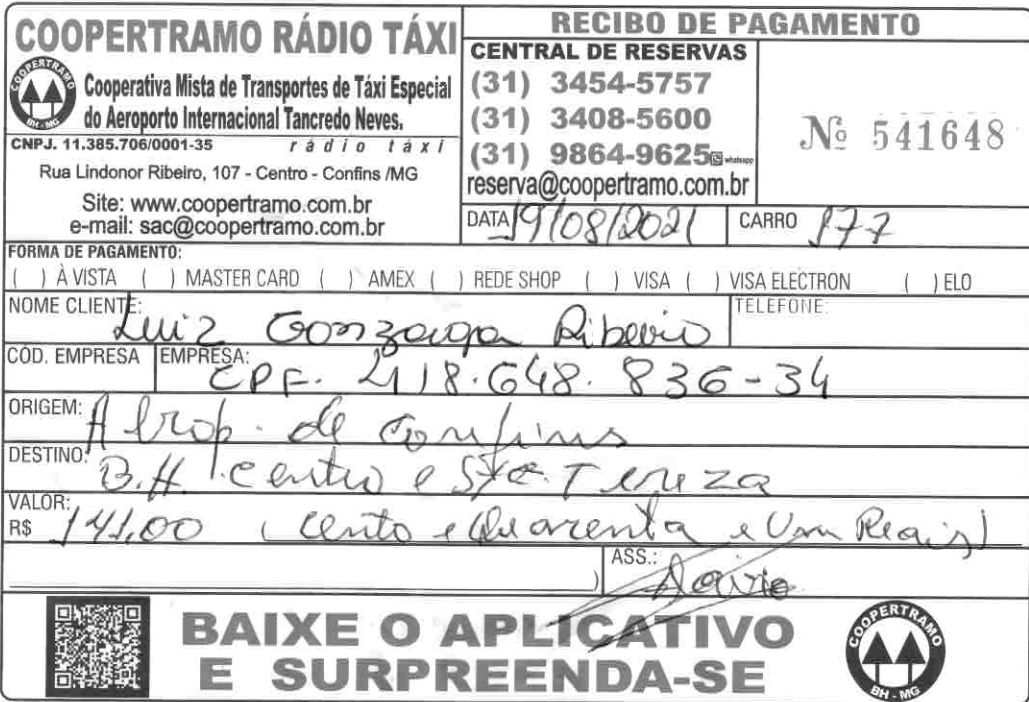 COOPERTRAMO RÁDIO TÁXI
COOPERTRAMO
BH - MG
Cooperativa Mista de Transportes de Táxi Especial
do Aeroporto Internacional Tancredo Neves.
CNPJ. 11.385.706/0001-35 rádio táxi
Rua Lindonor Ribeiro, 107 - Centro - Confins /MG
Site: www.coopertramo.com.br
e-mail: sac@coopertramo.com.br
RECIBO DE PAGAMENTO
CENTRAL DE RESERVAS
(31) 3454-5757
(31) 3408-5600
(31) 9864-9625 whatsapp
reserva@coopertramo.com.br
Nº 541648
DATA 19/08/2021 CARRO 177
FORMA DE PAGAMENTO:
( ) À VISTA ( ) MASTER CARD ( ) AMEX ( ) REDE SHOP ( ) VISA ( ) VISA ELECTRON ( ) ELO
NOME CLIENTE: Luiz Gonzaga Ribeiro TELEFONE:
CÓD. EMPRESA EMPRESA: CPF. 418.648.836-34
ORIGEM: Aerop. de Confins
DESTINO: B.H. Centro e Sta. Tereza
VALOR: R$ 141,00 (Cento e Quarenta e Um Reais)
ASS.:
BAIXE O APLICATIVO
E SURPREENDA-SE
COOPERTRAMO
BH - MG